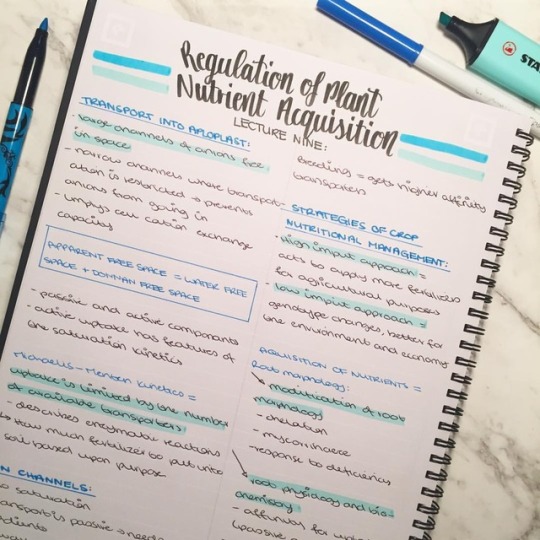 Regulation of Plant
Nutrient Acquisition
LECTURE NINE:
TRANSPORT INTO APOPLAST:
- large channels of anions free
in space
- narrow channels where transport-
ation is restricted → prevents
anions from going in
- implys cell cation exchange
capacity
APPARENT FREE SPACE = WATER FREE
SPACE + DONNAN FREE SPACE
- passive and active components
- active uptake has features of
the saturation kinetics
Michaelis-Menten kinetics =
uptake is limited by the number
of available transporters.
- describes enzymatic reactions
how much fertilizer to put into
soil based upon purpose
N CHANNELS:
no saturation
transport is passive → needs
Breeding = gets higher affinity
transporters
- STRATEGIES OF CROP
NUTRITIONAL MANAGEMENT:
- High input approach =
acts to apply more fertilizers
for agricultural purposes
- low input approach =
genotype changes, better for
the environment and economy
ACQUISITION OF NUTRIENTS =
root morphology:
modification of root
morphology
- mycorrhizae
- response to deficiencies
root physiology and bio-
chemistry
- affinities for
(passive
STA